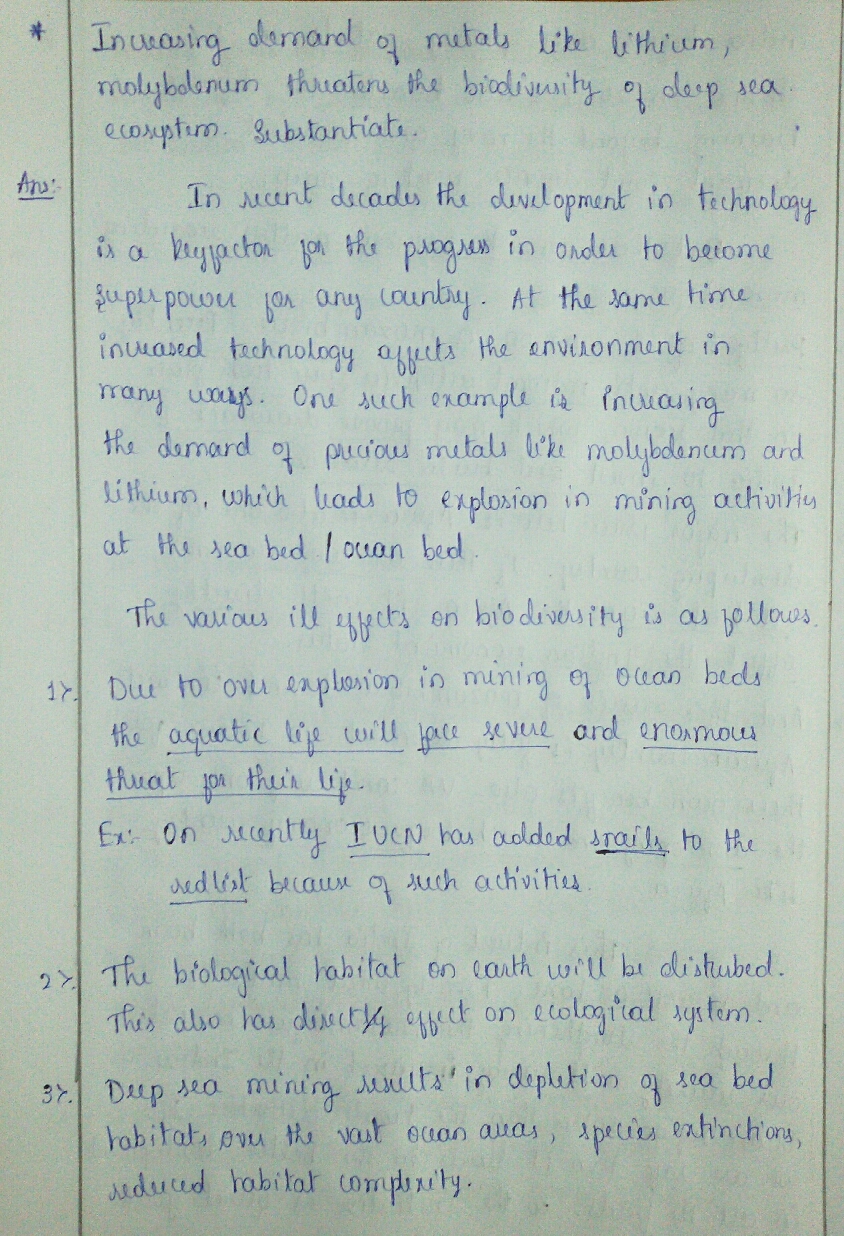 * Increasing demand of metals like lithium,
molybdenum threatens the biodiversity of deep sea
ecosystem. Substantiate.
Ans:-
In recent decades the development in technology
is a keyfactor for the progress in order to become
superpower for any country. At the same time
increased technology affects the environment in
many ways. One such example is increasing
the demand of precious metals like molybdenum and
lithium, which leads to explosion in mining activities
at the sea bed / ocean bed.
The various ill effects on biodiversity is as follows.
1). Due to over explosion in mining of ocean beds
the aquatic life will face severe and enormous
threat for their life.
Ex:- On recently IUCN has added snails to the
redlist because of such activities.
2). The biological habitat on earth will be disturbed.
This also has directly effect on ecological system.
3). Deep sea mining results in depletion of sea bed
habitats over the vast ocean areas, species extinctions,
reduced habitat complexity.